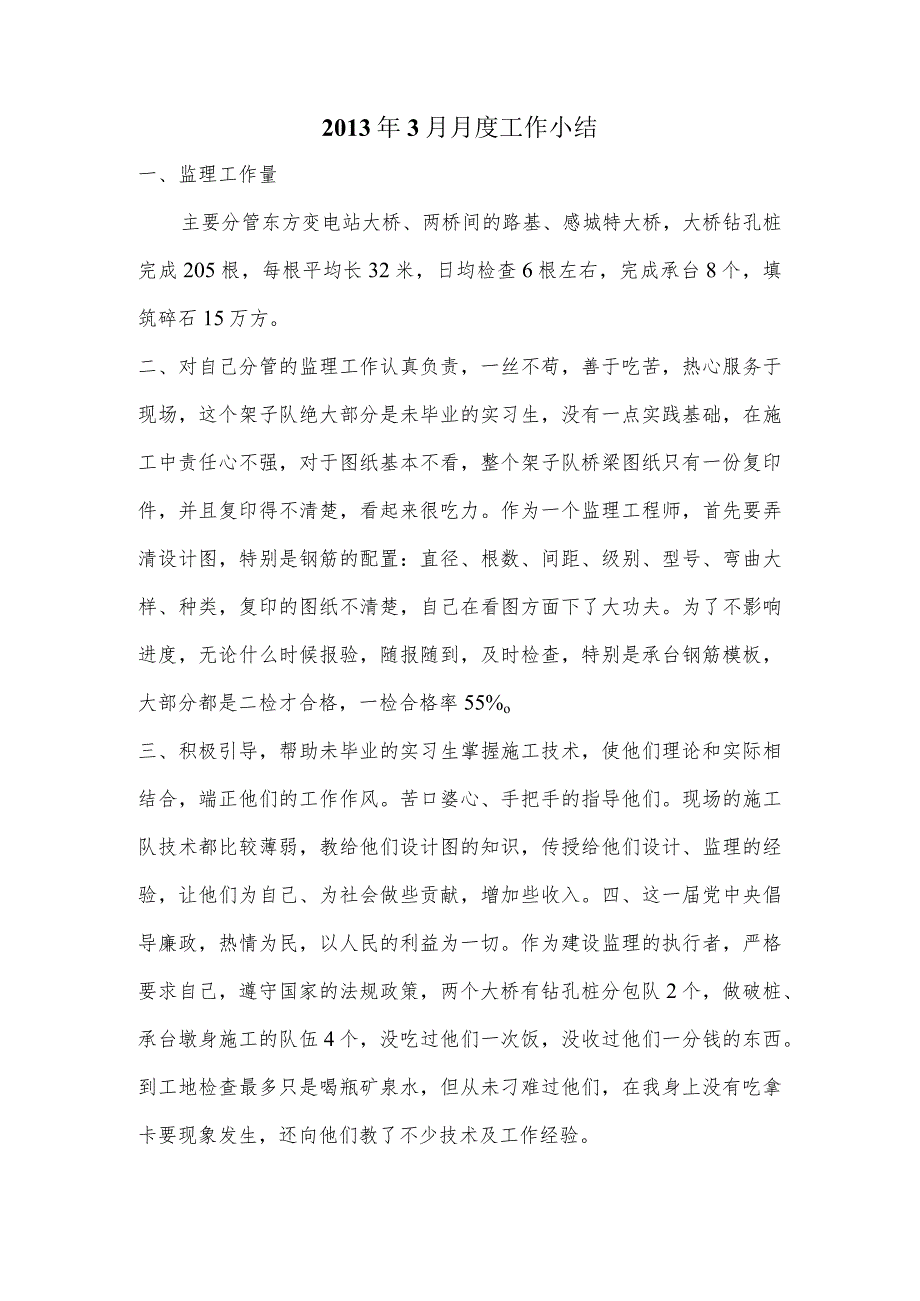 2013年3月月度工作小结
一、监理工作量
主要分管东方变电站大桥、两桥间的路基、感城特大桥，大桥钻孔桩
完成205根，每根平均长32米，日均检查6根左右，完成承台8个，填
筑碎石15万方。
二、对自己分管的监理工作认真负责，一丝不苟，善于吃苦，热心服务于
现场，这个架子队绝大部分是未毕业的实习生，没有一点实践基础，在施
工中责任心不强，对于图纸基本不看，整个架子队桥梁图纸只有一份复印
件，并且复印得不清楚，看起来很吃力。作为一个监理工程师，首先要弄
清设计图，特别是钢筋的配置：直径、根数、间距、级别、型号、弯曲大
样、种类，复印的图纸不清楚，自己在看图方面下了大功夫。为了不影响
进度，无论什么时候报验，随报随到，及时检查，特别是承台钢筋模板，
大部分都是二检才合格，一检合格率55%o
三、积极引导，帮助未毕业的实习生掌握施工技术，使他们理论和实际相
结合，端正他们的工作作风。苦口婆心、手把手的指导他们。现场的施工
队技术都比较薄弱，教给他们设计图的知识，传授给他们设计、监理的经
验，让他们为自己、为社会做些贡献，增加些收入。四、这一届党中央倡
导廉政，热情为民，以人民的利益为一切。作为建设监理的执行者，严格
要求自己，遵守国家的法规政策，两个大桥有钻孔桩分包队2个，做破桩、
承台墩身施工的队伍4个，没吃过他们一次饭，没收过他们一分钱的东西。
到工地检查最多只是喝瓶矿泉水，但从未刁难过他们，在我身上没有吃拿
卡要现象发生，还向他们教了不少技术及工作经验。